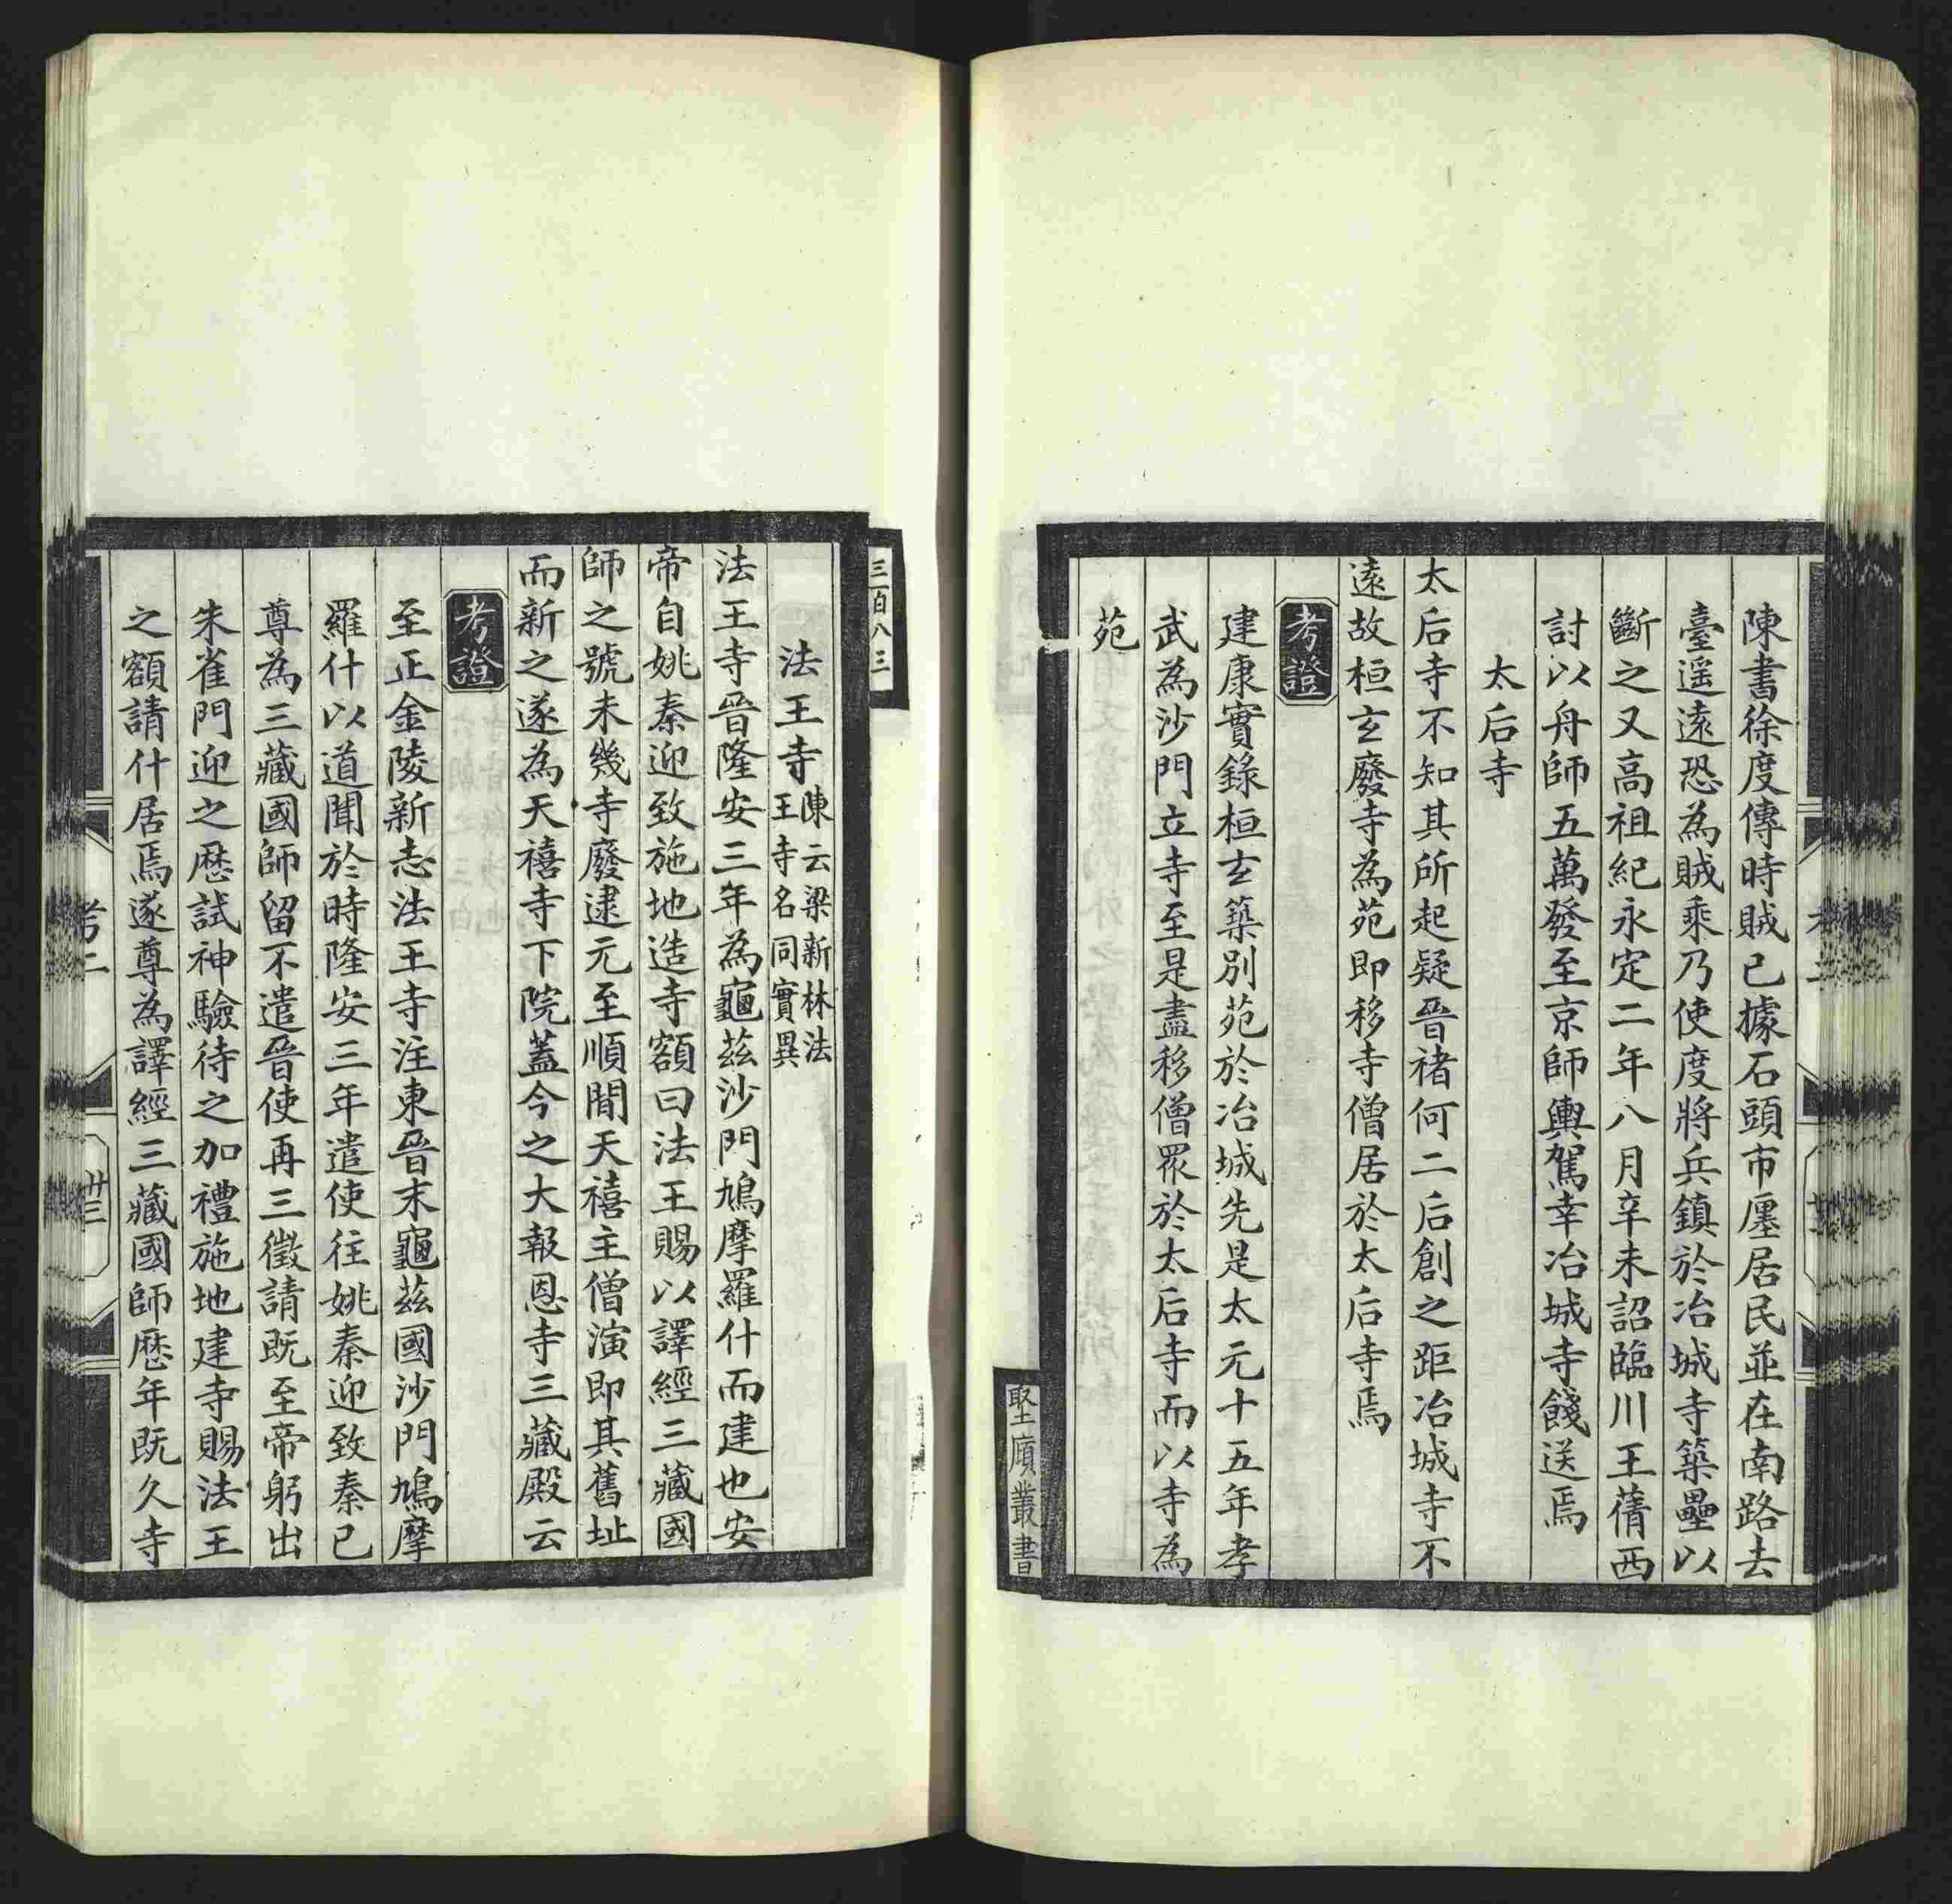 陳書徐度傳時賊已據石頭市廛居民並在南路去
臺遥遠恐為賊乘乃使度將兵鎮於冶城寺築壘以
斷之又高祖紀永定二年八月辛未詔臨川王蒨西
討以舟師五萬發至京師輿駕幸冶城寺餞送焉
太后寺
太后寺不知其所起疑晉褚何二后創之距冶城寺不
遠故桓玄廢寺為苑即移寺僧居於太后寺焉
考證
建康實錄桓玄築別苑於冶城先是太元十五年孝
武為沙門立寺至是盡移僧眾於太后寺而以寺為
苑
堅頋叢書
三百八三
法王寺陳云梁新林法
王寺名同實異
法王寺晉隆安三年為龜茲沙門鳩摩羅什而建也安
帝自姚秦迎致施地造寺額曰法王賜以譯經三藏國
師之號未幾寺廢逮元至順間天禧主僧演即其舊址
而新之遂為天禧寺下院蓋今之大報恩寺三藏殿云
考證
至正金陵新志法王寺注東晉末龜茲國沙門鳩摩
羅什以道聞於時隆安三年遣使往姚秦迎致秦已
尊為三藏國師留不遣晉使再三徵請既至帝躬出
朱雀門迎之歷試神驗待之加禮施地建寺賜法王
之額請什居焉遂尊為譯經三藏國師歷年既久寺
考二
卅三